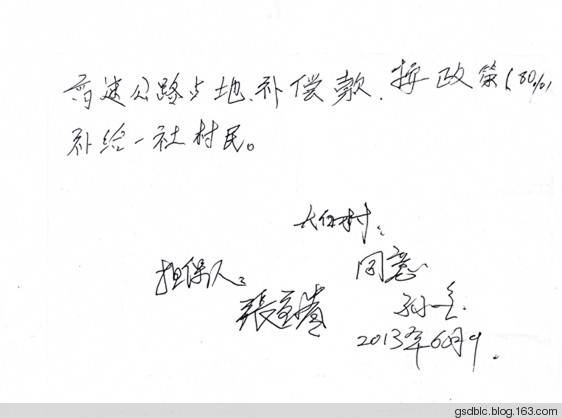 高速公路占地补偿款,按政策(80%)
补给一社村民。
大伯村:
同意
担保人:
孙
2013年6月9.
gsdblc.blog.163.com